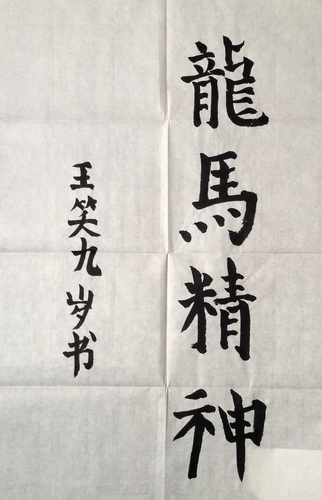 龍馬精神
王笑九岁书